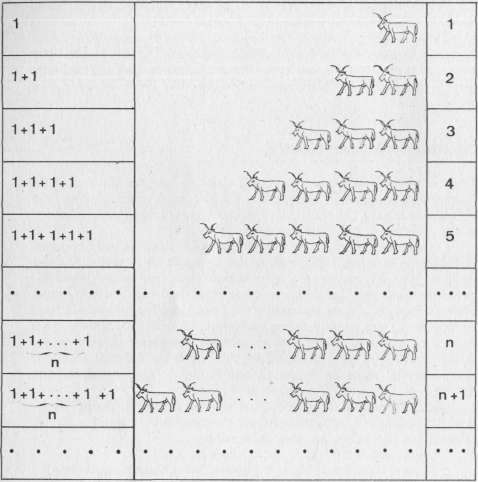 1 1
1+1 2
1+1+1 3
1+1+1+1 4
1+1+1+1+1 5
• • • • • • • • • • • • • • • • • • •
1+1+ . . . +1 . . . n
n
1+1+ . . . +1 +1 . . . n+1
n
• • • • • • • • • • • • • • • • • • •